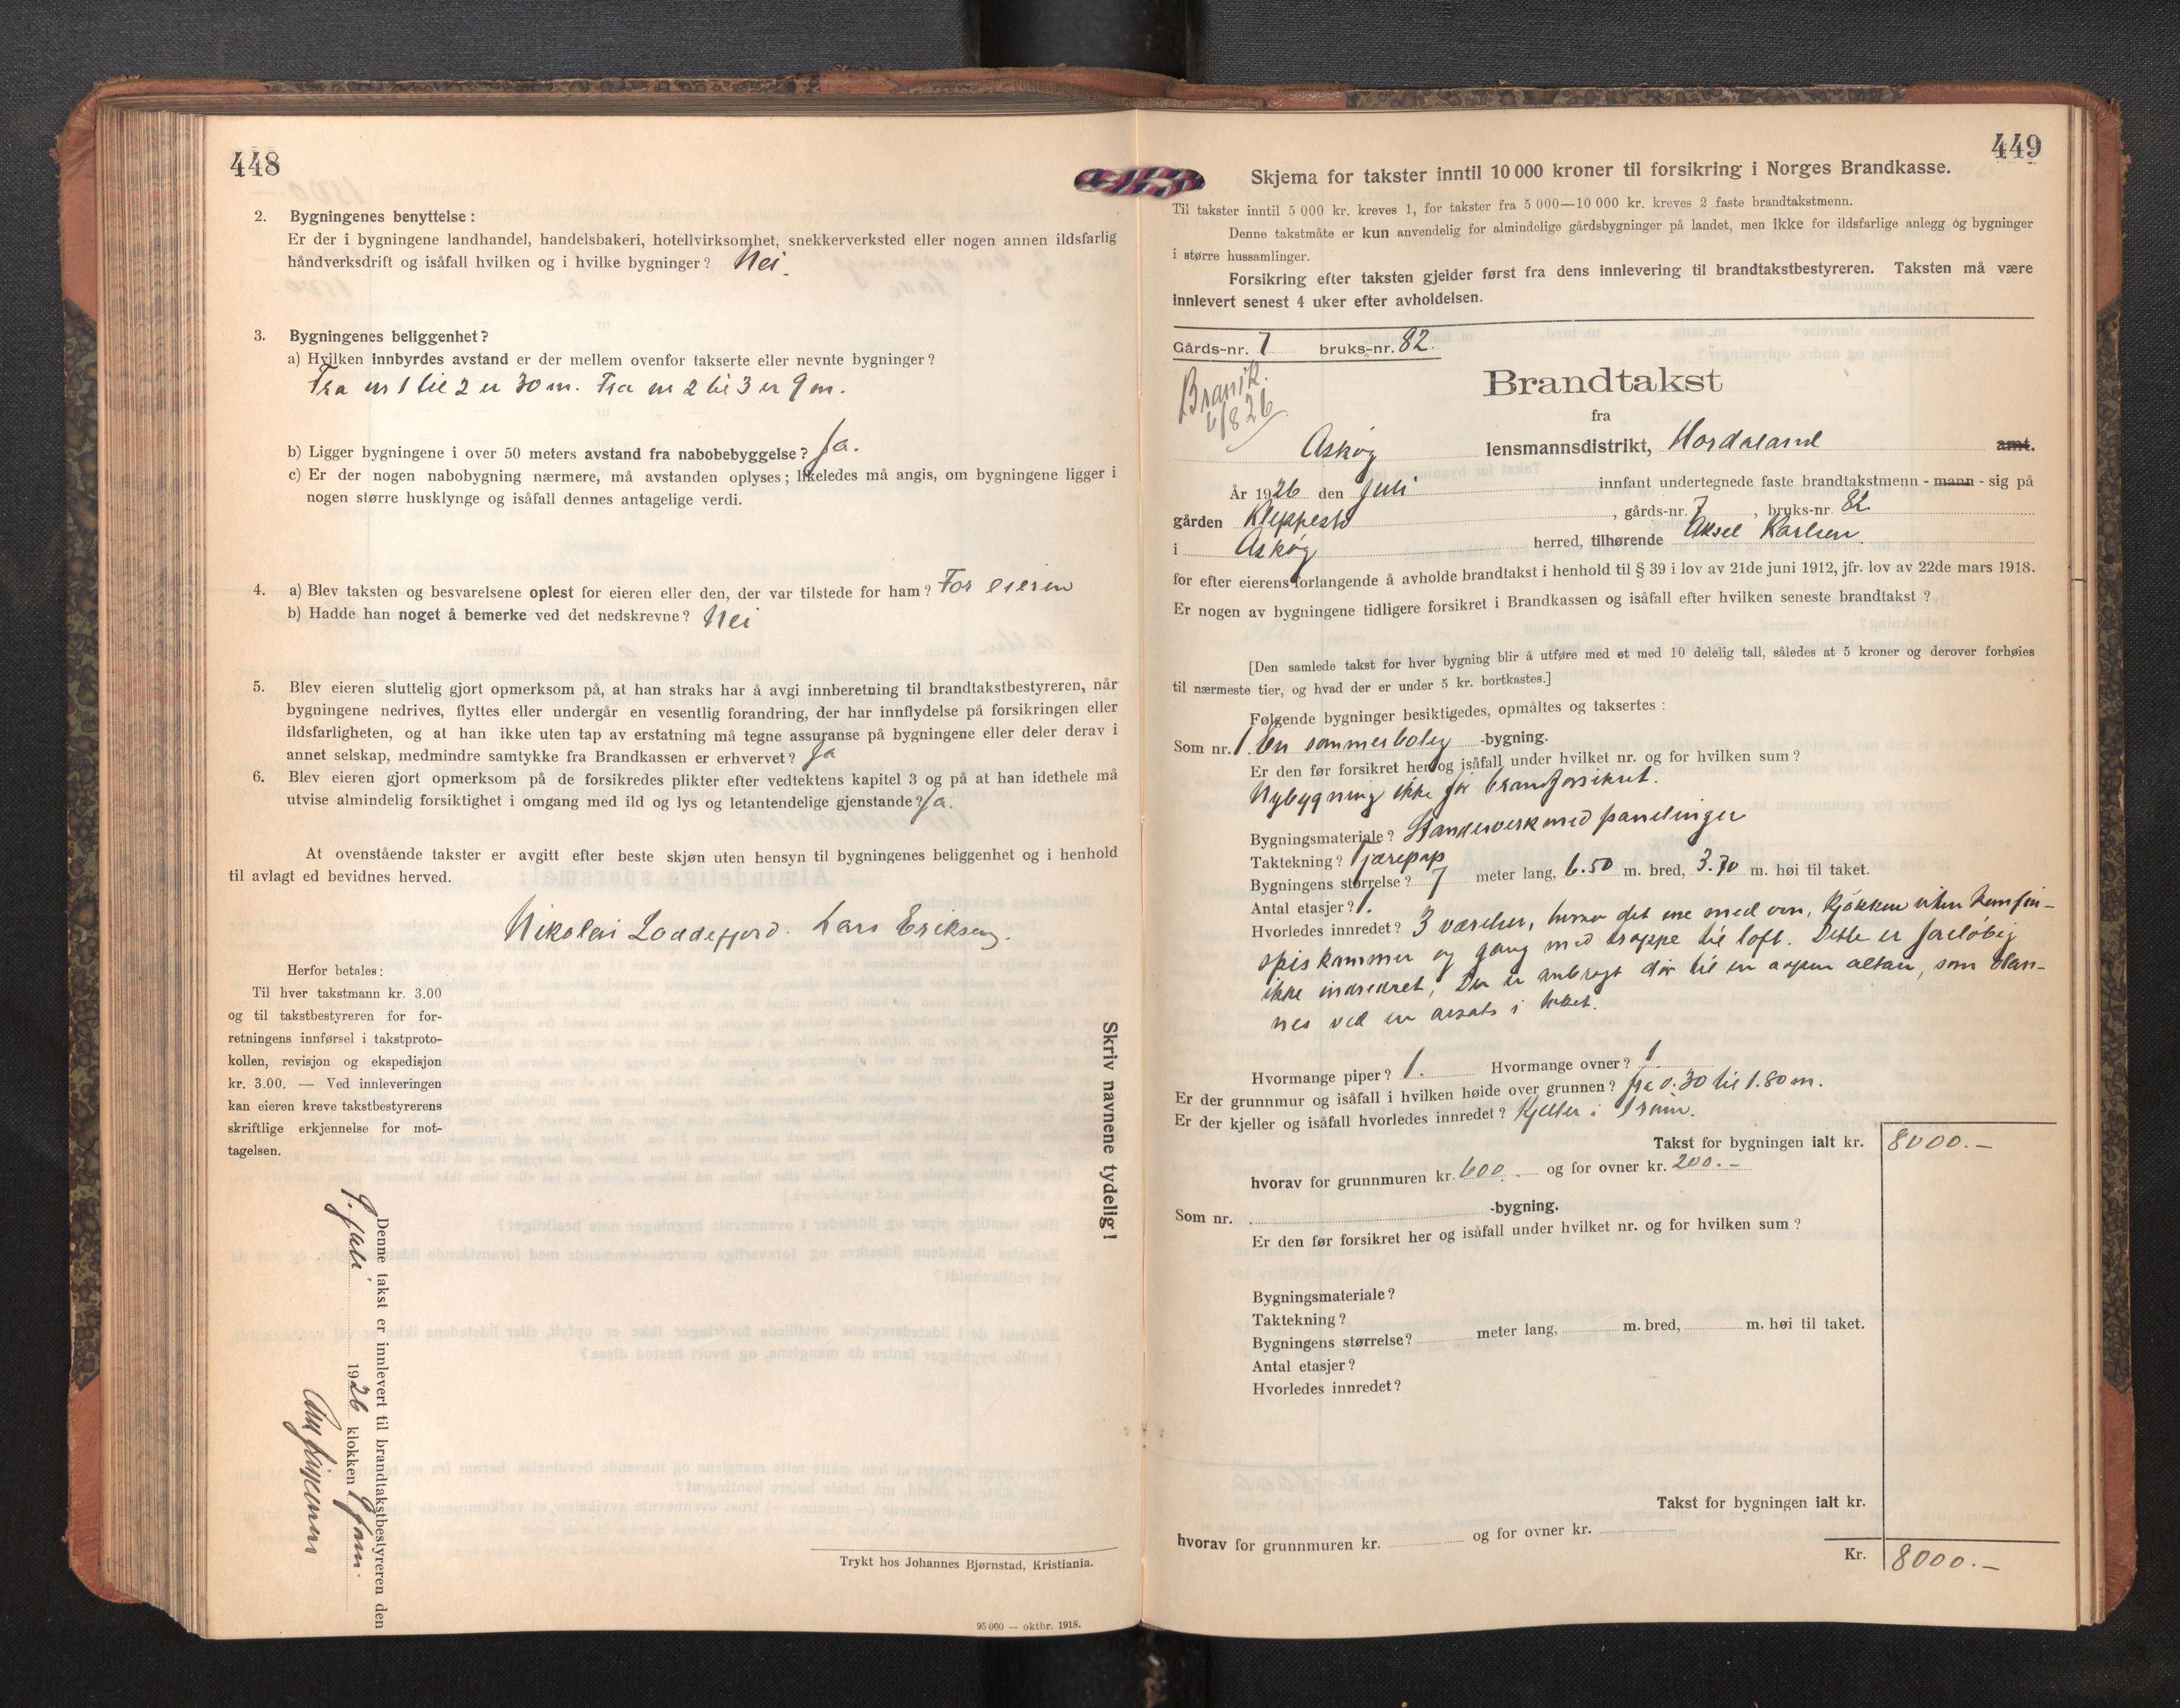 448
2. Bygningenes benyttelse:
Er der i bygningene landhandel, handelsbakeri, hotellvirksomhet, snekkerverksted eller nogen annen ildsfarlig
håndverksdrift og isåfall hvilken og i hvilke bygninger? Nei.
3. Bygningenes beliggenhet?
a) Hvilken innbyrdes avstand er der mellem ovenfor takserte eller nevnte bygninger?
Fra nr 1 til 2 er 30 m. Fra nr 2 til 3 er 9 m.
b) Ligger bygningene i over 50 meters avstand fra nabobebyggelse? Ja.
c) Er der nogen nabobygning nærmere, må avstanden oplyses; likeledes må angis, om bygningene ligger i
nogen større husklynge og isåfall dennes antagelige verdi.
4. a) Blev taksten og besvarelsene oplest for eieren eller den, der var tilstede for ham? For eieren
b) Hadde han noget å bemerke ved det nedskrevne? Nei
5. Blev eieren sluttelig gjort opmerksom på, at han straks har å avgi innberetning til brandtakstbestyreren, når
bygningene nedrives, flyttes eller undergår en vesentlig forandring, der har innflydelse på forsikringen eller
ildsfarligheten, og at han ikke uten tap av erstatning må tegne assuranse på bygningene eller deler derav i
annet selskap, medmindre samtykke fra Brandkassen er erhvervet? Ja
6. Blev eieren gjort opmerksom på de forsikredes plikter efter vedtektens kapitel 3 og på at han idethele må
utvise almindelig forsiktighet i omgang med ild og lys og letantendelige gjenstande? Ja.
At ovenstående takster er avgitt efter beste skjøn uten hensyn til bygningenes beliggenhet og i henhold
til avlagt ed bevidnes herved.
Nikolai Loddefjord. Lars Eriksen.
Herfor betales:
Til hver takstmann kr. 3.00
og til takstbestyreren for for-
retningens innførsel i takstproto-
kollen, revisjon og ekspedisjon
kr. 3.00. — Ved innleveringen
kan eieren kreve takstbestyrerens
skriftlige erkjennelse for mot-
tagelsen.
Skriv navnene tydelig!
Denne takst er innlevert til brandtakstbestyreren den
9. juli 1926 klokken 9 form.
Trykt hos Johannes Bjørnstad, Kristiania.
95 000 — oktbr. 1918.
449
Skjema for takster inntil 10 000 kroner til forsikring i Norges Brandkasse.
Til takster inntil 5 000 kr. kreves 1, for takster fra 5 000—10 000 kr. kreves 2 faste brandtakstmenn.
Denne takstmåte er kun anvendelig for almindelige gårdsbygninger på landet, men ikke for ildsfarlige anlegg og bygninger
i større hussamlinger.
Forsikring efter taksten gjelder først fra dens innlevering til brandtakstbestyreren. Taksten må være
innlevert senest 4 uker efter avholdelsen.
Gårds-nr. 7 bruks-nr. 82.
6/8 26
Brandtakst
fra
Askøy lensmannsdistrikt, Hordaland amt.
År 1926 den Juli innfant undertegnede faste brandtakstmenn - mann - sig på
gården Kleppestø, gårds-nr. 7, bruks-nr. 82
i Askøy herred, tilhørende Aksel Karlsen.
for efter eierens forlangende å avholde brandtakst i henhold til § 39 i lov av 21de juni 1912, jfr. lov av 22de mars 1918.
Er nogen av bygningene tidligere forsikret i Brandkassen og isåfall efter hvilken seneste brandtakst?
[Den samlede takst for hver bygning blir å utføre med et med 10 delelig tall, således at 5 kroner og derover forhøies
til nærmeste tier, og hvad der er under 5 kr. bortkastes.]
Følgende bygninger besiktigedes, opmåltes og taksertes:
Som nr. 1. En sommerbolig -bygning.
Er den før forsikret her og isåfall under hvilket nr. og for hvilken sum?
Nybygning ikke før brandforsikret.
Bygningsmateriale? Standerverk med panelinger
Taktekning? Tjærepap
Bygningens størrelse? 7 meter lang, 6.50 m. bred, 3.70 m. høi til taket.
Antal etasjer? 1.
Hvorledes innredet? 3 værelser, hvorav det ene med ovn, kjøkken uten komfur
spiskammer og gang med trappe til loft. Dette er foreløbig
ikke indredet, Der er anbragt dør til en aapen altan, som dan-
nes ved en avsats i taket.
Hvormange piper? 1. Hvormange ovner? 1
Er der grunnmur og isåfall i hvilken høide over grunnen? fra 0.30 til 1.80 m.
Er der kjeller og isåfall hvorledes innredet? Kjeller i 1 rum.
Takst for bygningen ialt kr. 8000.-
hvorav for grunnmuren kr. 600.- og for ovner kr. 200.-
Som nr. -bygning.
Er den før forsikret her og isåfall under hvilket nr. og for hvilken sum?
Bygningsmateriale?
Taktekning?
Bygningens størrelse? meter lang, m. bred, m. høi til taket.
Antal etasjer?
Hvorledes innredet?
Takst for bygningen ialt kr.
hvorav for grunnmuren kr. og for ovner kr.
Kr. 8000.-